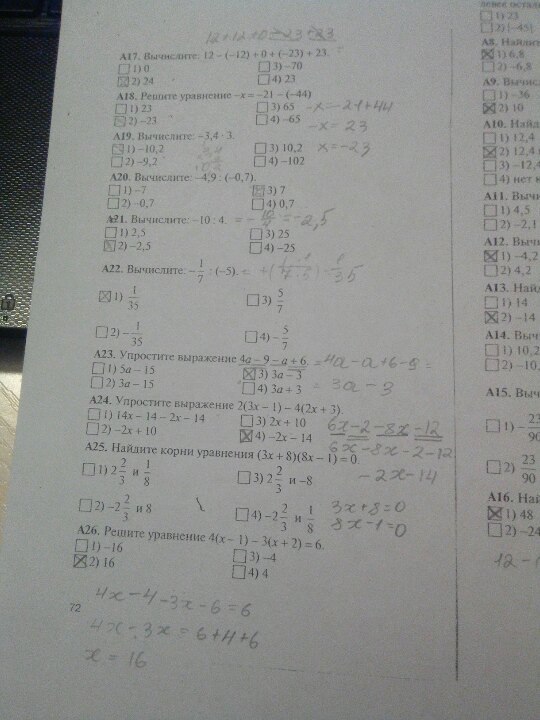 12+12+0-23+23
А17. Вычислите: 12 – (–12) + 0 + (–23) + 23.
1) 0 3) –70
2) 24 4) 23
А18. Решите уравнение –x = –21 – (–44)
1) 23 3) 65 -x=-21+44
2) –23 4) –65 -x=23
А19. Вычислите: –3,4 · 3.
1) –10,2 3) 10,2 x=-23
2) –9,2 4) –102
А20. Вычислите: –4,9 : (–0,7).
1) –7 3) 7
2) –0,7 4) 0,7
А21. Вычислите: –10 : 4. =-10/4=-2,5
1) 2,5 3) 25
2) –2,5 4) –25
А22. Вычислите: –1/7 : (–5).
1) 1/35 3) 5/7
2) –1/35 4) –5/7
А23. Упростите выражение 4a – 9 – a + 6. =4a-a+6-9=
1) 5a – 15 3) 3a – 3
2) 3a – 15 4) 3a + 3 =3a-3
А24. Упростите выражение 2(3x – 1) – 4(2x + 3).
1) 14x – 14 – 2x – 14 3) 2x + 10 6x-2-8x-12
2) –2x + 10 4) –2x – 14 6x-8x-2-12
А25. Найдите корни уравнения (3x + 8)(8x – 1) = 0.
1) 2 2/3 и 1/8 3) 2 2/3 и –8 -2x-14
2) –2 2/3 и 8 4) –2 2/3 и 1/8 3x+8=0
8x-1=0
А26. Решите уравнение 4(x – 1) – 3(x + 2) = 6.
1) –16 3) –4
2) 16 4) 4
4x-4-3x-6=6
72
4x-3x=6+4+6
x=16
1) 23
2) |–45|
А8. Найдите
1) 6,8
2) –6,8
А9. Вычис
1) –36
2) 10
А10. Найд
1) 12,4
2) 12,4
3) –12,4
4) нет
А11. Вычи
1) 4,5
2) –2,1
А12. Вычи
1) –4,2
2) 4,2
А13. Найд
1) 14
2) –14
А14. Вычи
1) 10,2
2) –10,
А15. Выч
1) –23/90
2) 23/90
А16. Най
1) 48
2) –24
12 -